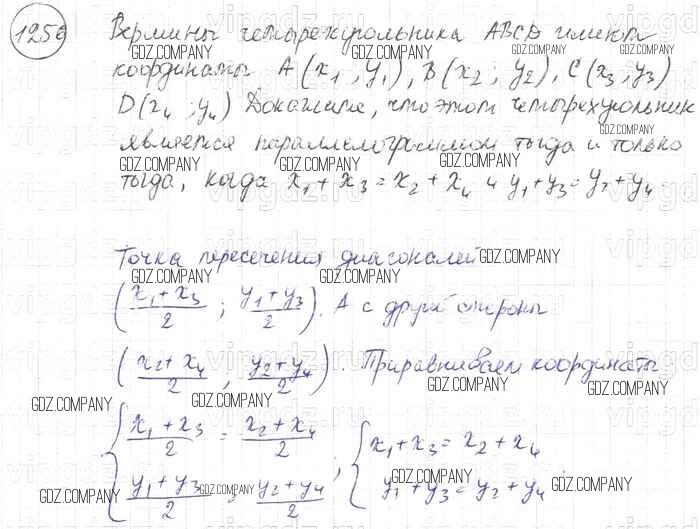 1256 Вершины четырехугольника ABCD имеют
координаты A(x₁; y₁), B(x₂; y₂), C(x₃; y₃)
D(x₄; y₄) Докажите, что этот четырехугольник
является параллелограммом тогда и только
тогда, когда x₁ + x₃ = x₂ + x₄ и y₁ + y₃ = y₂ + y₄
Точка пересечения диагоналей
((x₁ + x₃)/2 ; (y₁ + y₃)/2). А с другой стороны
((x₂ + x₄)/2 , (y₂ + y₄)/2). Приравниваем координаты
{ (x₁ + x₃)/2 = (x₂ + x₄)/2 ; { x₁ + x₃ = x₂ + x₄
(y₁ + y₃)/2 = (y₂ + y₄)/2 y₁ + y₃ = y₂ + y₄
GDZ.COMPANY